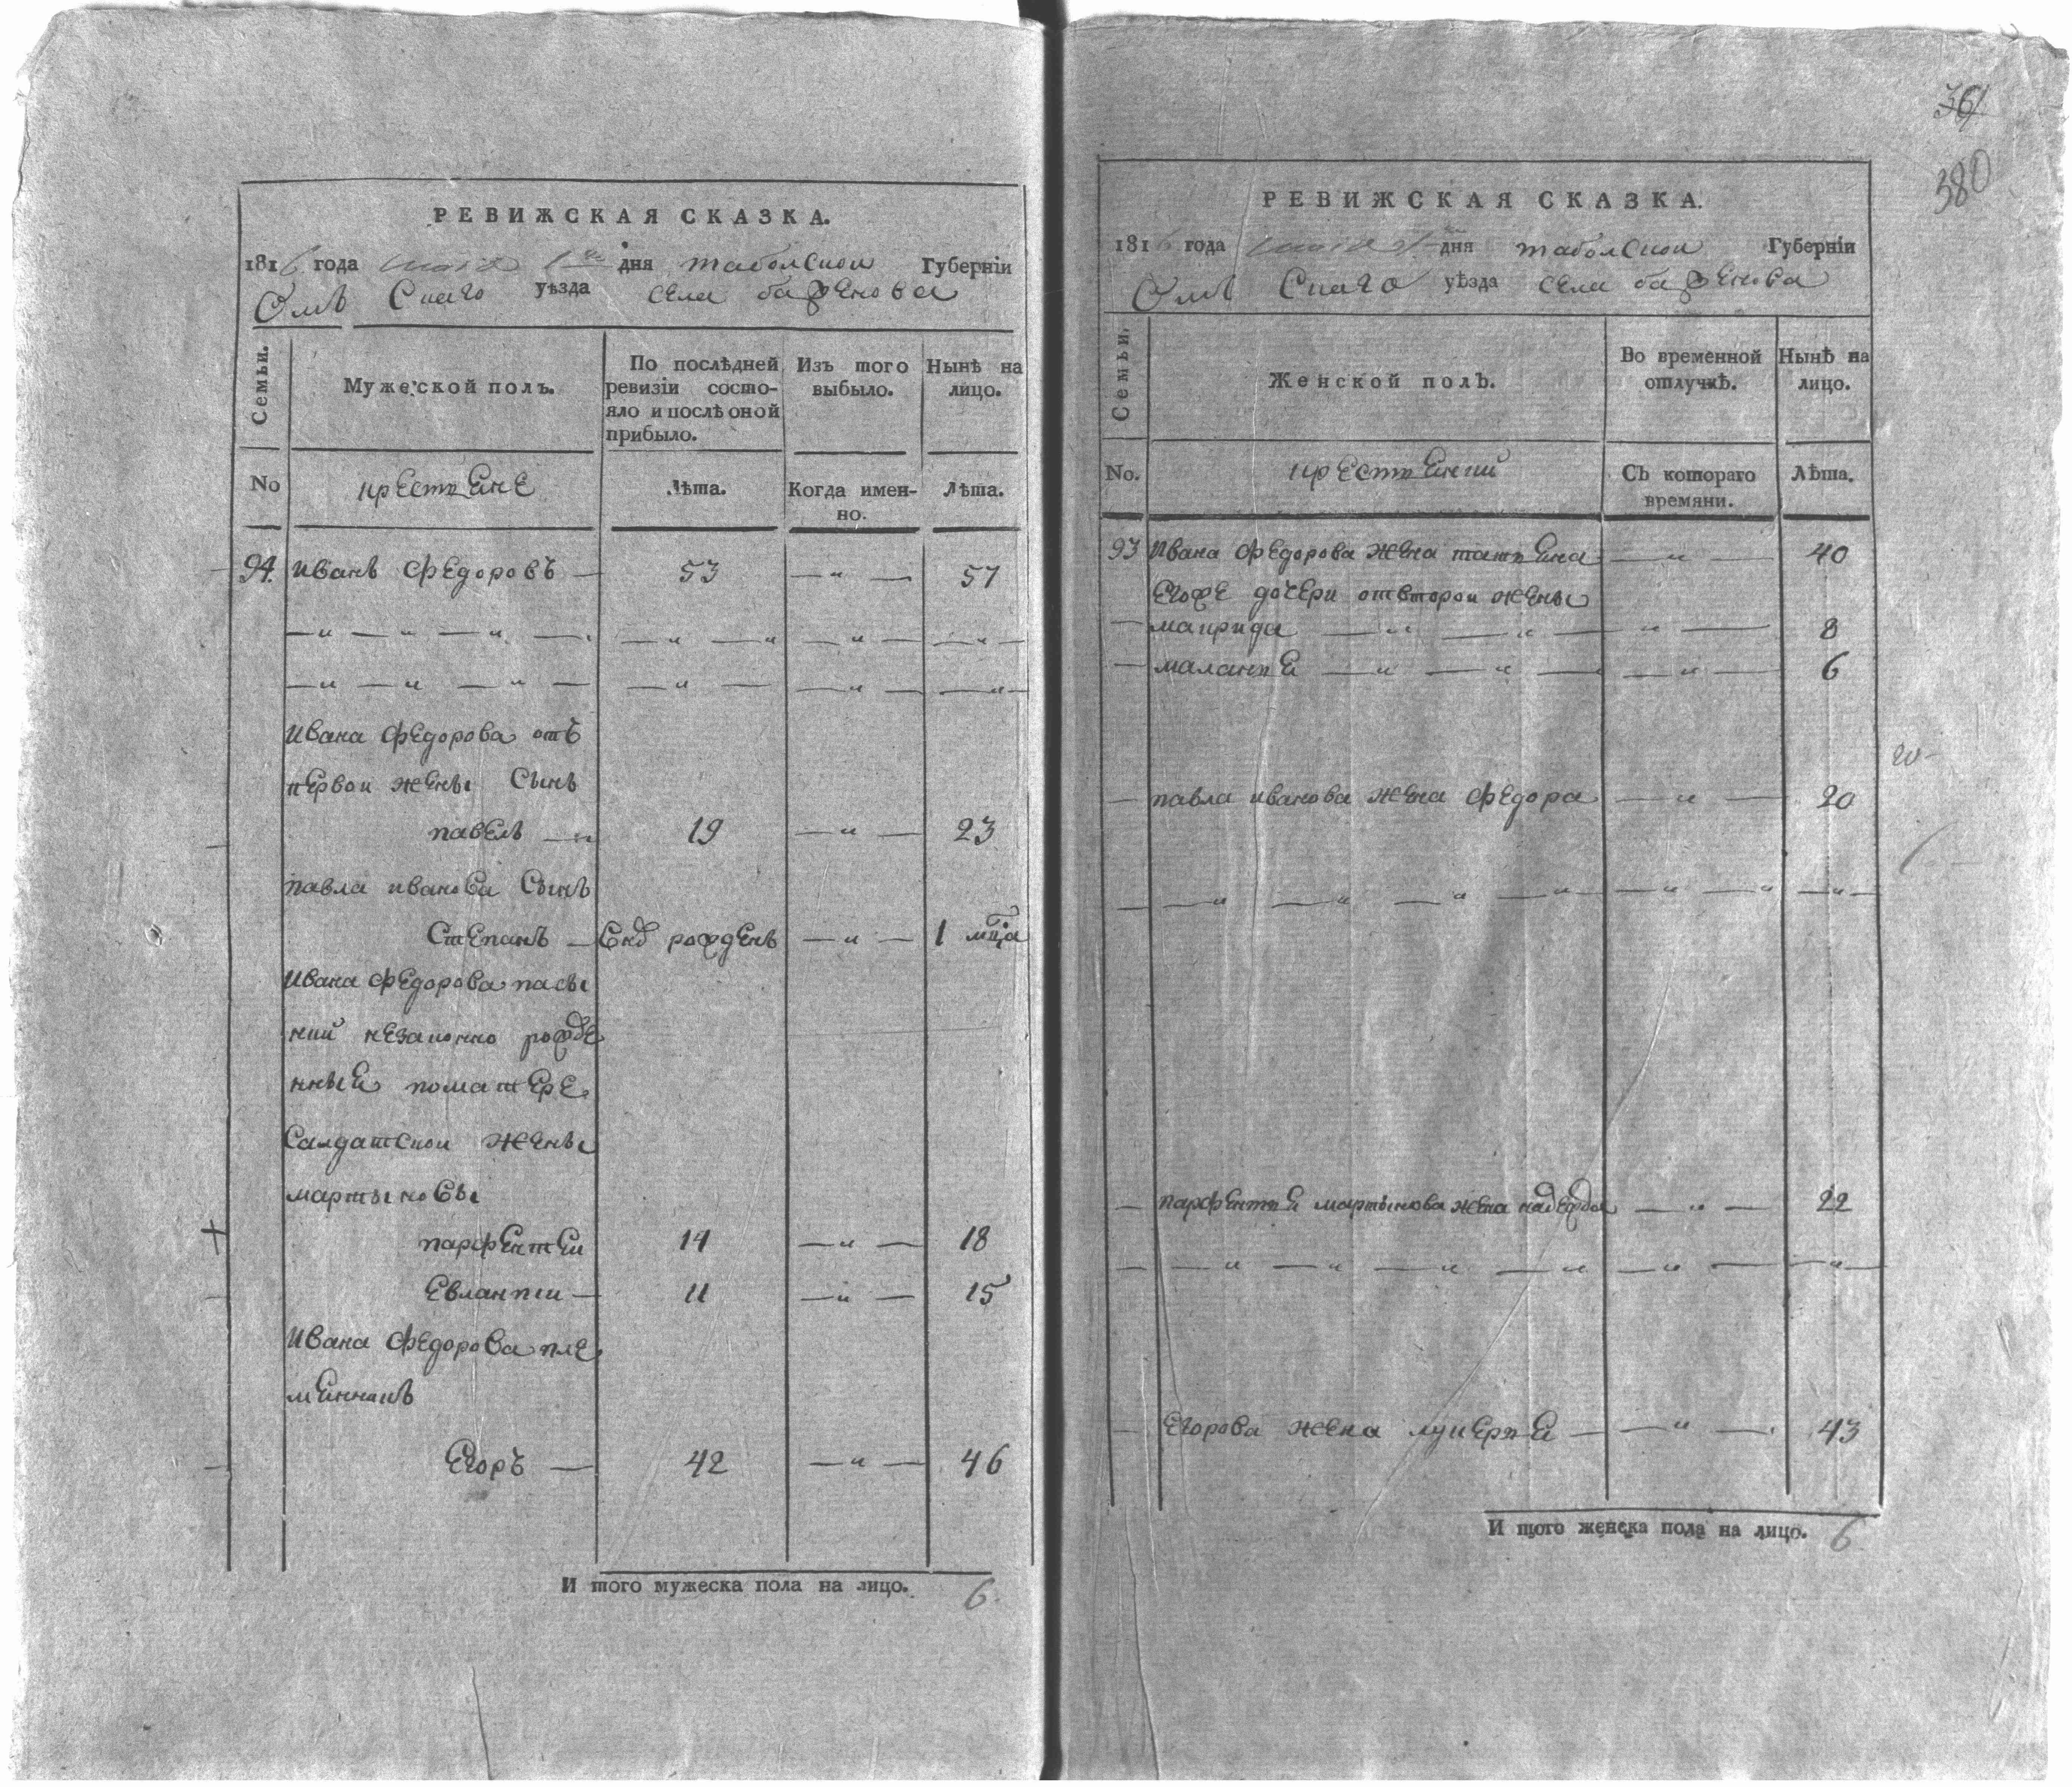 361
380
РЕВИЖСКАЯ СКАЗКА.
1816 года маия 1 го дня таболскои Губерніи
Омъ Скаго уѣзда села бафенова
Семьи.
Мужеской полъ.
По послѣдней ревизіи состояло и послѣ оной прибыло.
Изъ того выбыло.
Нынѣ на лицо.
No крестьяне Лѣта. Когда именно. Лѣта.
94. иванъ федоровъ — 53 — „ — 57
ивана федорова отъ
первои жены сынъ
павелъ — 19 — „ — 23
павла иванова сынъ
степанъ — рожденъ — „ — 1 мца
ивана федорова пасы
нки незаконно рожде
нные поматере
салдатскои жены
мартыновы
парфентеи 14 — „ — 18
евлантии — 11 — „ — 15
ивана федорова пле
менникъ
егоръ — 42 — „ — 46
И того мужеска пола на лицо. 6
РЕВИЖСКАЯ СКАЗКА.
1816 года маия 1 го дня таболскои Губерніи
Омъ Скаго уѣзда села бафенова
Семьи.
Женской полъ.
Во временной отлучкѣ.
Нынѣ на лицо.
No. Съ котораго времяни. Лѣта.
93 ивана федорова жена татьяна — „ — 40
егоже дочери отвторои жены
макрида — „ — „ — „ — 8
маланья — „ — „ — „ — 6
павла иванова жена федора — „ — 20
парфентья мартынова жена надежда — „ — 22
егорова жена лукерья — „ — 43
И того женска пола на лицо. 6